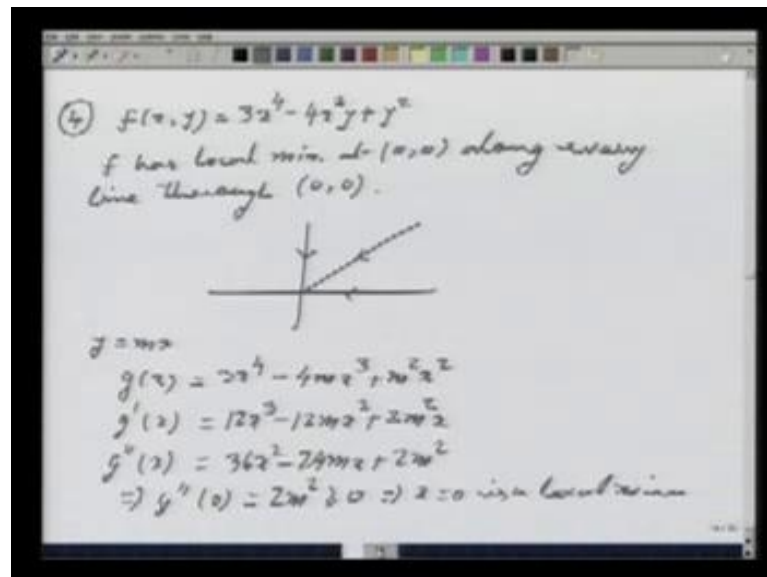 ④ f(x,y) = 3x⁴ - 4x²y + y²
f has local min. at (0,0) along every
line through (0,0).
y = mx
g(x) = 3x⁴ - 4mx³ + m²x²
g'(x) = 12x³ - 12mx² + 2m²x
g''(x) = 36x² - 24mx + 2m²
⇒ g''(0) = 2m² ≥ 0 ⇒ x = 0 is a local